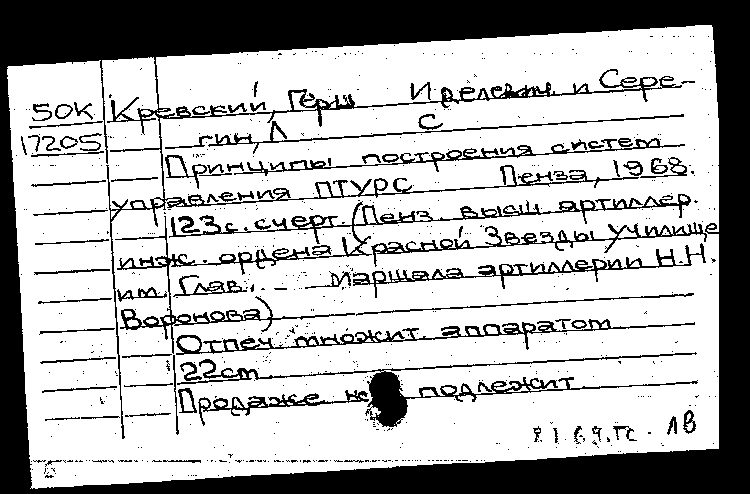 50К Кревский, Герш И и Сере-
17205 гин, Л С
Принципы построения систем
управления ПТУРС Пенза, 1968.
123с. с черт. (Пенз. высш. артиллер.
инж. ордена Красной Звезды училище
им. Глав. маршала артиллерии Н.Н.
Воронова)
Отпеч. множит. аппаратом
22см
Продаже не подлежит
ЛВ